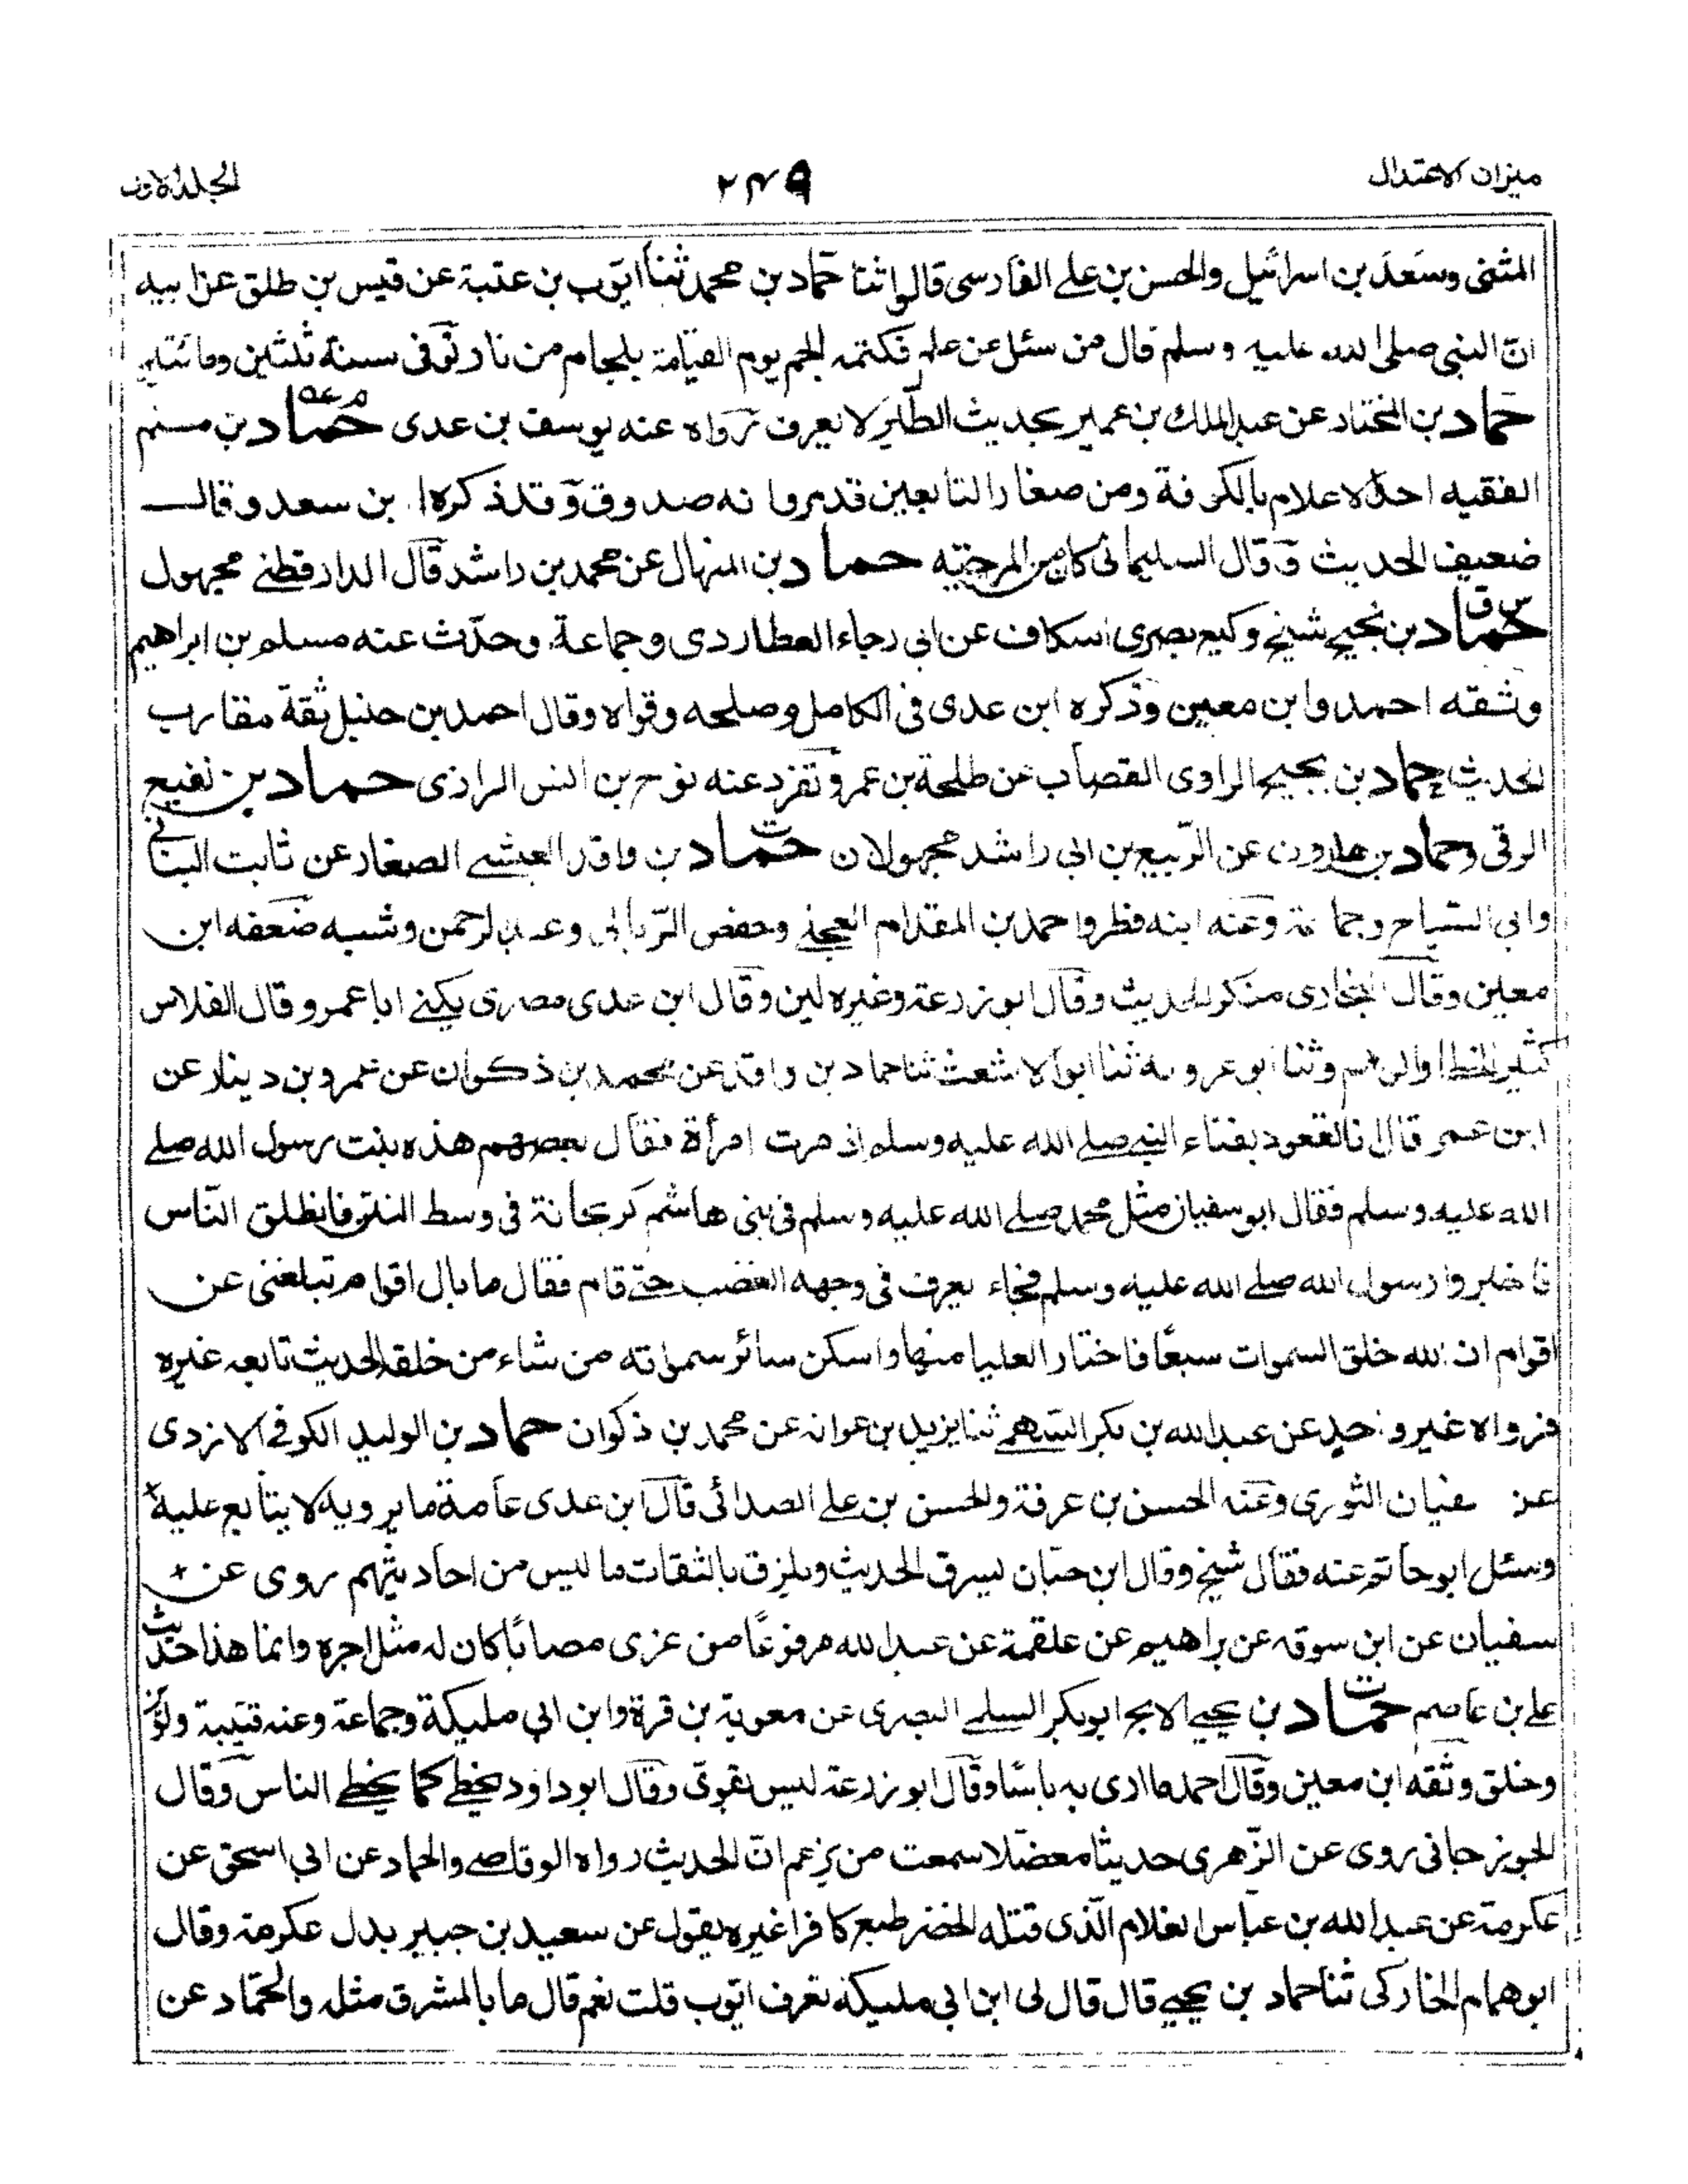 ميزان الاعتدال ٢٤٩ الجلد الاول
المثنى وسعد بن اسرائيل والحسن بن علے الفارسى قالوا ثنا حماد بن محمد ثنا ايوب بن عتبة عن قيس بن طلق عن ابيه
انّ النبى صلى الله عليه وسلم قال من سئل عن علم فكتمه الجم يوم القيامة بلجام من نار توفى سنة ثلثين ومائتين
حماد بن المختار عن عبد الملك بن عمير بحديث الطير لا يعرف رواه عنه يوسف بن عدى حماد بن مسلم م عه
الفقيه احد الاعلام بالكوفة ومن صغار التابعين صدوق وقد ذكره ابن سعد وقال
ضعيف الحديث وقال السليمانى كان من المرجئه حماد بن المنهال عن محمد بن راشد قال الدارقطنے مجهول
حماد س ق بن نجيح شيخ وكيع بصرى اسكاف عن ابى رجاء العطاردى وجماعة وحدّث عنه مسلم بن ابراهيم
وثقه احمد وابن معين وذكره ابن عدى فى الكامل وصلحه وقواه وقال احمد بن حنبل ثقة مقارب
الحديث حماد بن يحيى الراوى القصاب عن طلحة بن عمرو تفرد عنه نوح بن انس الرازى حماد بن نفيع
الرقى وحماد بن هارون عن الربيع بن ابى راشد مجهولان حماد ت بن واقد العيشے الصفار عن ثابت البنانى
وابى التياح وجماعة وعنه ابنه فطر واحمد بن المقدام العجلے وحفص الربالى وعبد الرحمن وشبيه ضعفه ابن
معين وقال البخارى منكر الحديث وقال ابو زرعة وغيره لين وقال ابن عدى مصرى يكنے ابا عمرو قال الفلاس
كثير الخطا والوهم وثنا ابو عروبة ثنا ابو الاشعث ثنا حماد بن واقد عن محمد بن ذكوان عن عمرو بن دينار عن
ابن عمر قال انا لقعود بفناء النبے صلے الله عليه وسلم اذ مرت امرأة فقال بعضهم هذه بنت رسول الله صلے
الله عليه وسلم فقال ابو سفيان مثل محمد صلے الله عليه وسلم فى بنى هاشم كريحانة فى وسط النتن فانطلق النّاس
فاخبروا رسول الله صلے الله عليه وسلم فجاء يعرف فى وجهه الغضب حتے قام فقال ما بال اقوام تبلغنى عن
اقوام ان الله خلق السموات سبعا فاختار العليا منها واسكن سائر سمواته من شاء من خلقه الحديث تابعه غيره
فرواه غير واحد عن عبد الله بن بكر السهمے ثنا يزيد بن عوانه عن محمد بن ذكوان حماد بن الوليد الكوفے الازدى
عن سفيان الثورى وعنه الحسن بن عرفة والحسن بن علے الصدائى قال ابن عدى عامة ما يرويه لا يتابع عليه
وسئل ابو حاتم عنه فقال شيخ وقال ابن حبان يسرق الحديث ويلزق بالثقات ما ليس من احاديثهم روى عن
سفيان عن ابن سوقه عن ابراهيم عن علقمة عن عبد الله مرفوعًا من عزى مصابًا كان له مثل اجره وانما هذا حديث
علے بن عاصم حماد ت بن يحيے الابح ابو بكر السلمے البصرى عن معوية بن قرة وابن ابى مليكة وجماعة وعنه قتيبة ولوين
وخلق وثقه ابن معين وقال احمد ما ارى به باسًا وقال ابو زرعة ليس بقوى وقال ابو داود يخطے كما يخطے الناس وقال
الجوزجانى روى عن الزهرى حديثا معضلا سمعت من يزعم انّ الحديث رواه الوقاصے والحماد عن ابى اسحق عن
عكرمة عن عبد الله بن عباس الغلام الّذى قتله الخضر طبع كافرا غيره يقول عن سعيد بن جبير بدل عكرمة وقال
ابو همام الخاركى ثنا حماد بن يحيے قال قال لى ابن ابى مليكه تعرف ايّوب قلت نعم قال ما بالمشرق مثله والحمّاد عن